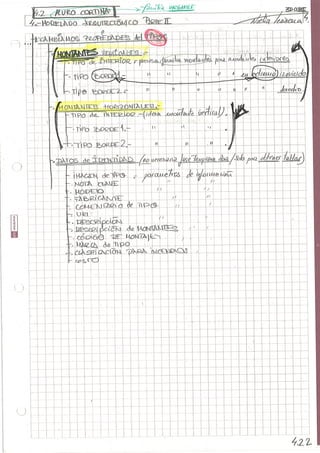 4.2. MURO CORTINA
→ familia MONTANTE
4.- MODELADO ARQUITECTÓNICO PARTE II
EXAMINAMOS PROPIEDADES del TIPO
MONTANTES VERTICALES.-
- TIPO de INTERIOR: precisa familia montantes para montantes interiores
- TIPO BORDE 1.- " " " " " en extremo izquierdo
- TIPO BORDE 2.- " " " " " derecho
MONTANTES HORIZONTALES.-
- TIPO de INTERIOR.- (idem montante vertical).
- TIPO BORDE 1.- " " "
- TIPO BORDE 2.- " " "
DATOS de IDENTIDAD (no necesaria /solo para obtener tablas)
- IMAGEN de TIPO: parámetros de información
- NOTA CLAVE " "
- MODELO " "
- FABRICANTE " "
- COMENTARIO de TIPOS " "
- URL
- DESCRIPCIÓN
- DESCRIPCIÓN de MONTANTES
- CÓDIGO DE MONTAJE
- MARCA de TIPO
- CLASIFICACIÓN PARA INCENDIOS
- COSTO
4.2.2